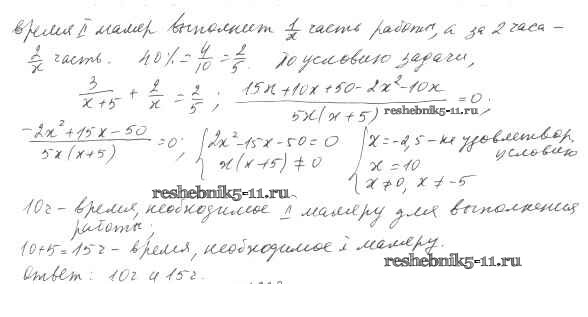 время II маляр выполнит 1/x часть работы, а за 2 часа –
2/x часть. 40% = 4/10 = 2/5. По условию задачи,
3/(x+5) + 2/x = 2/5; (15x+10x+50-2x²-10x)/(5x(x+5)) = 0;
reshebnik5-11.ru
(-2x²+15x-50)/(5x(x+5)) = 0; { 2x²-15x-50=0 x(x+5)≠0 { x=-2,5 - не удовлетвор. условию x=10 x≠0, x≠-5
reshebnik5-11.ru
10ч – время, необходимое II маляру для выполнения
работы;
10+5=15ч – время, необходимое I маляру.
reshebnik5-11.ru
Ответ: 10ч и 15ч.